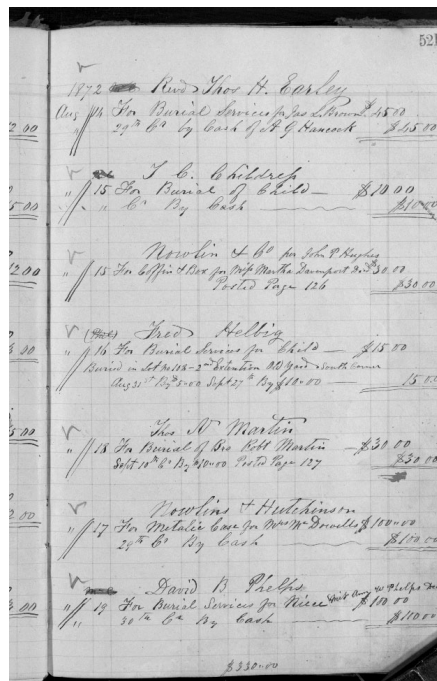 521
1872 Revd Thos H. Earley
Aug 14 For Burial Services for Jas L. Brown $45.00
29th Cr by Cash of A G Hancock $45.00
2.00
T. C. Childress
" 15 For Burial of Child — $10.00
" " Cr By Cash $10.00
5.00
Nowlin & Co per John P Hughes
" 15 For Coffin & Box for Miss Martha Davenport $30.00
12.00
Posted Page 126 $30.00
Fred Helbig
" 16 For Burial Services for Child — $15.00
Buried in Lot No 108 – 2nd Extention Old Yard South Corner
Aug 31st By $5.00 Sept 27th By $10.00 — 15.00
Thos N Martin
" 18 For Burial of Bro Robt Martin — $30.00
Sept 10th Cr By $10.00 Posted Page 127 $30.00
5.00
Nowlins & Hutchinson
" 17 For Metalic Case for Mrs $100.00
2.00
29th Cr By Cash $100.00
David B. Phelps
" 19 For Burial Services for Niece Miss W Phelps $100.00
30th Cr By Cash $100.00
$330.00